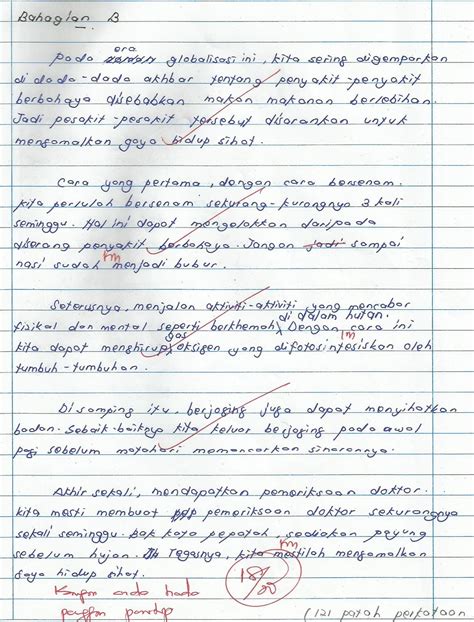 Bahagian B
era
Pada globalisasi ini, kita sering digemparkan
di dada-dada akhbar tentang penyakit-penyakit
berbahaya disebabkan makan makanan berlebihan.
Jadi pesakit-pesakit tersebut disarankan untuk
mengamalkan gaya hidup sihat.
Cara yang pertama, dengan cara bersenam.
kita perlulah bersenam sekurang-kurangnya 3 kali
seminggu. Hal ini dapat mengelakkan daripada
diserang penyakit berbahaya. Jangan jadi sampai
nasi sudah menjadi bubur.
Seterusnya, menjalan aktiviti-aktiviti yang mencabar
di dalam hutan.
fizikal dan mental seperti berkhemah. Dengan cara ini
gas
kita dapat menghirup oksigen yang difotosintesiskan oleh
tumbuh-tumbuhan.
Di samping itu, berjoging juga dapat menyihatkan
badan. Sebaik-baiknya kita keluar berjoging pada awal
pagi sebelum matahari memancarkan sinarannya.
Akhir sekali, mendapatkan pemeriksaan doktor.
kita mesti membuat pemeriksaan doktor sekurangnya
sekali seminggu. Bak kata pepatah, sediakan payung
sebelum hujan. Tegasnya, kita mestilah mengamalkan
gaya hidup sihat.
18/20
(121 patah perkataan